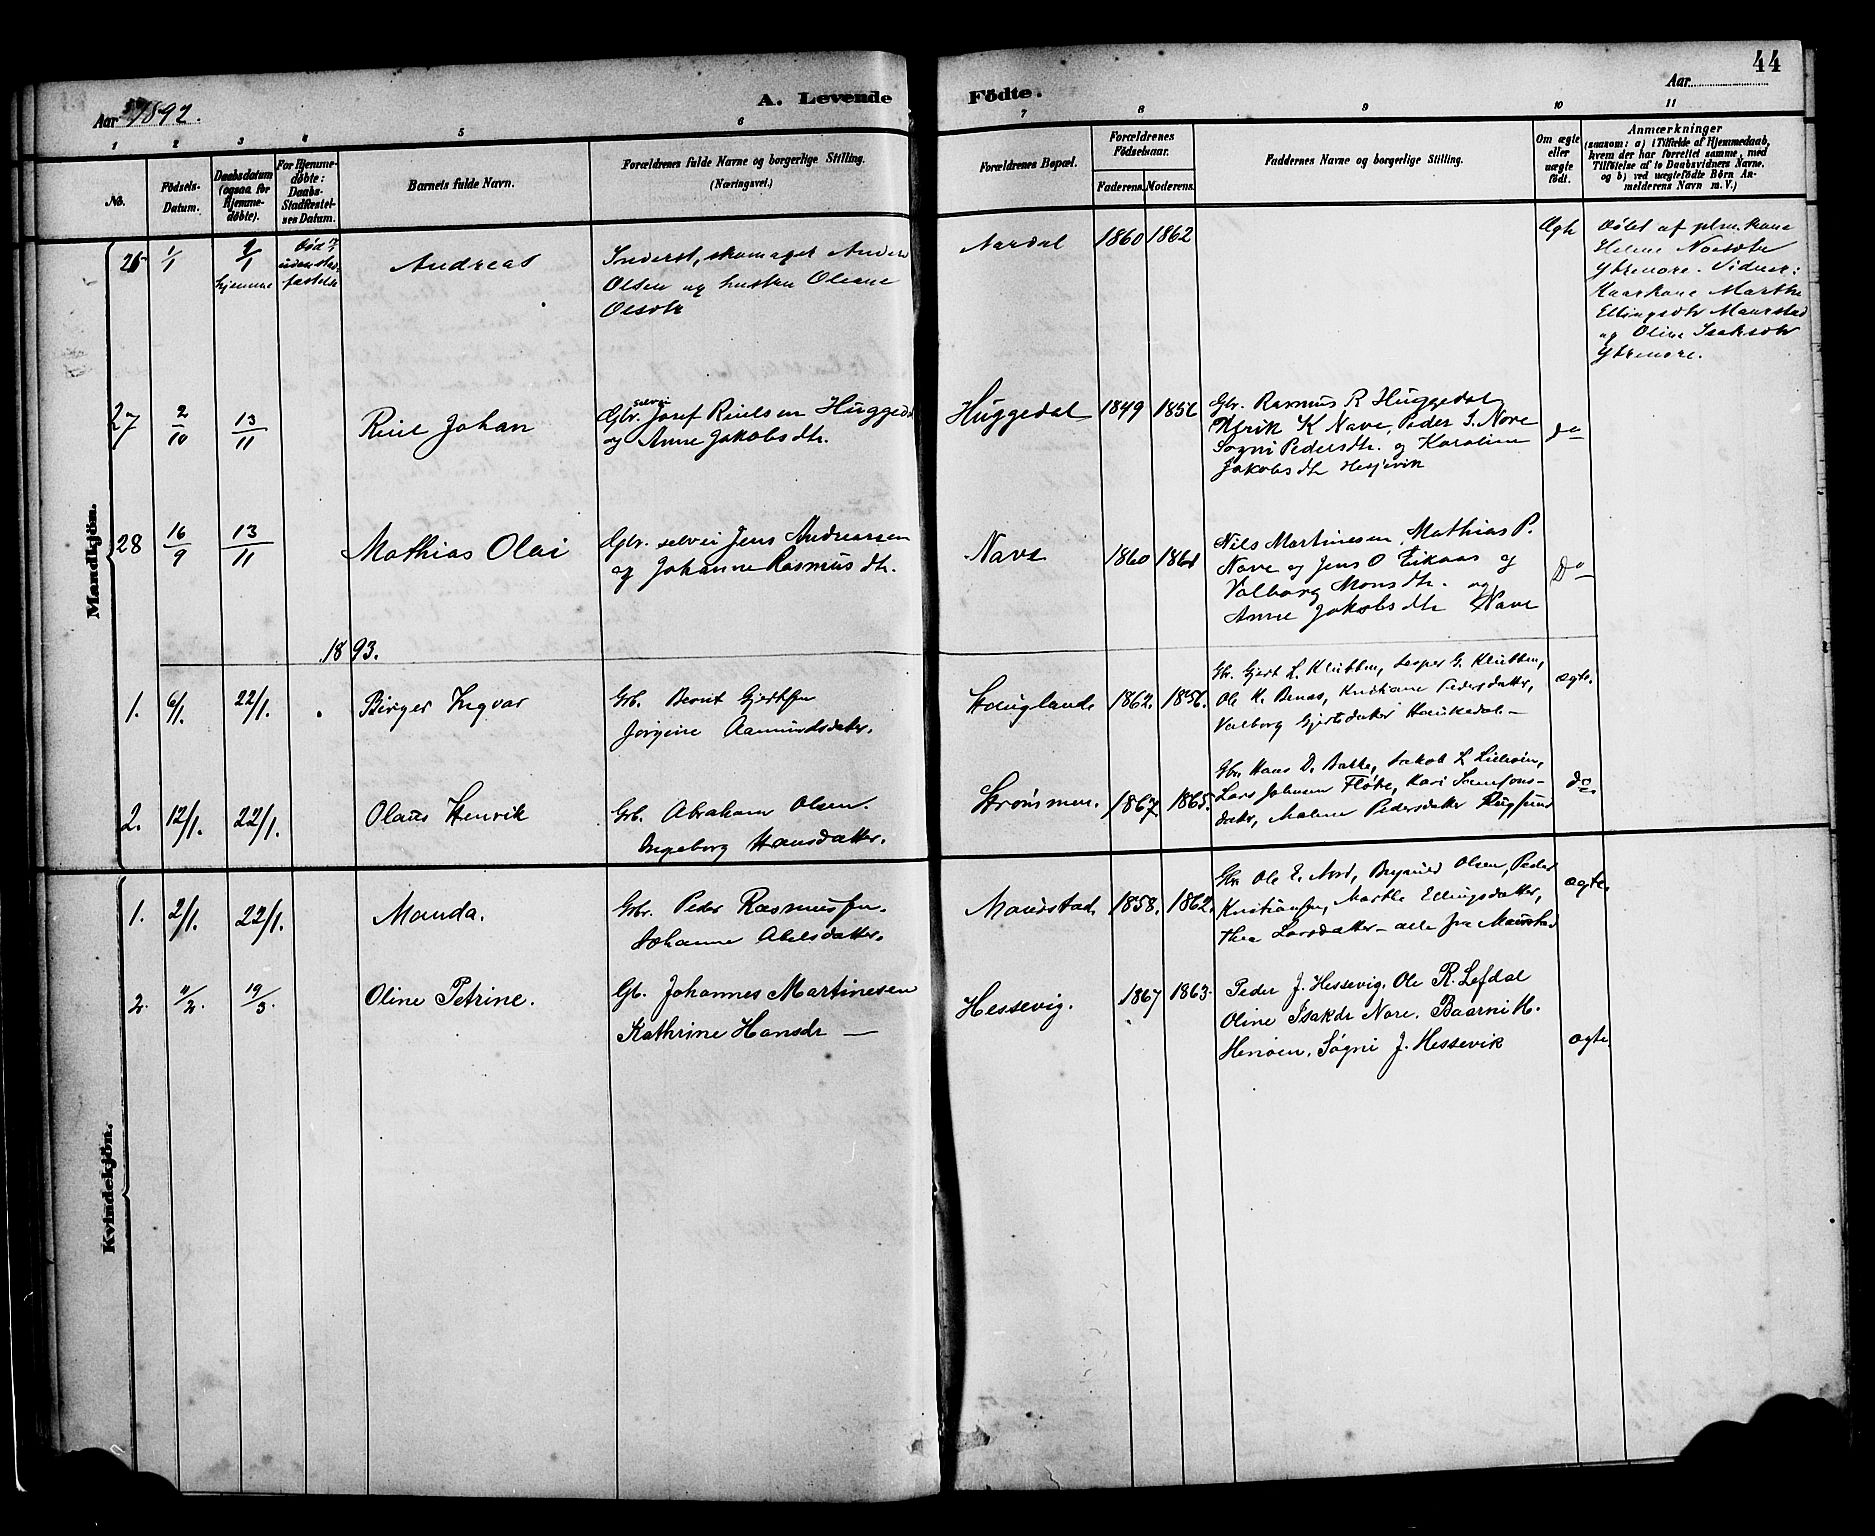 44
Aar 1892.
A. Levende
Födte.
Aar
1
2
3
4
5
6
7
8
9
10
11
No.
Födsels-
Datum.
Daabsdatum
(ogsaa for
Hjemme-
döbte).
For Hjemme-
döbte:
Daabs-
Stadfæstel-
ses Datum.
Barnets fulde Navn.
Forældrenes fulde Navne og borgerlige Stilling.
(Næringsvei.)
Forældrenes Bopæl.
Forældrenes
Födselsaar.
Faderens.
Moderens.
Faddernes Navne og borgerlige Stilling.
Om ægte
eller
uægte
født.
Anmærkninger
(saasom: a) i Tilfælde af Hjemmedaab,
hvem der har forrettet samme, med
Tilföielse af to Daabsvidners Navne.
og b) ved uægtefödte Börn An-
melderens Navn m. V.)
Mandkjön.
26 1/1 9/1 hjemme
Andreas
Inderst, skomager Anders
Olsen og hustru Oleane
Olsdtr
Aardal 1860 1862
Ægte
Døbt af plm. kone
Helene
Ytrenore. Vidner:
Kaarkone Marthe
Ellingsdtr Maurstad
og Oline Isaksdtr
Ytrenore.
27 2/10 13/11 Riul Johan
Gbr. selvei Josef Riulsen Huggedal
og Anne Jakobsdtr.
Huggedal 1849 1856
Gbr. Rasmus R Huggedal
Ulrik K Nave, Peder S. Nore
Sogni Pedersdtr. og Karoline
Jakobsdtr Hesjevik
do
28 16/9 13/11 Mathias Olai
Gbr. selvei Jens Andreassen
og Johanne Rasmusdtr.
Nave 1860 1861
Nils Martinesen, Mathias P.
Nave og Jens O Eikaas og
Valborg Monsdtr. og
Anne Jakobsdtr Nave
Do
1893.
1. 6/1. 22/1. Birger Ingvar
Grb. Bernt Gjertsen
Jørgine Aamundsdatter.
Haugland 1862. 1856.
Gbr. Gjert L. Klubben, Jesper G. Klubben,
Ole K. Benas, Kristiane Pedersdatter,
Valborg Gjertsdatter Haukedal
ægte.
2. 12/1. 22/1. Olaus Henrik
Grb. Abraham Olsen.
Ingeborg Hansdatter.
Strømmen. 1867 1865.
Gbr. Hans D. Bakke, Jakob L
Lars Johnsen Fløtre, Kari Samsons-
datter, Malene Pedersdatter Rugsund
do.
Kvindekjön.
1. 2/1. 22/1. Manda.
Gbr. Peder Rasmussen.
Johanne Abelsdatter.
Maurstad. 1858. 1862.
Gbr. Ole E. Nord, Brynild Olsen, Peder
Kristiansen, Marthe Ellingsdatter,
Thea Larsdatter – alle fra Maurstad
ægte.
2. 11/2. 19/3. Oline Petrine.
Gb. Johannes Martinesen
Kathrine Hansdr
Hessevig. 1867 1863.
Peder J. Hessevig, Ole R. Lefdal
Oline Isakdr Nore. Baarni H.
Henøen, Søgni J. Hessevik
ægte